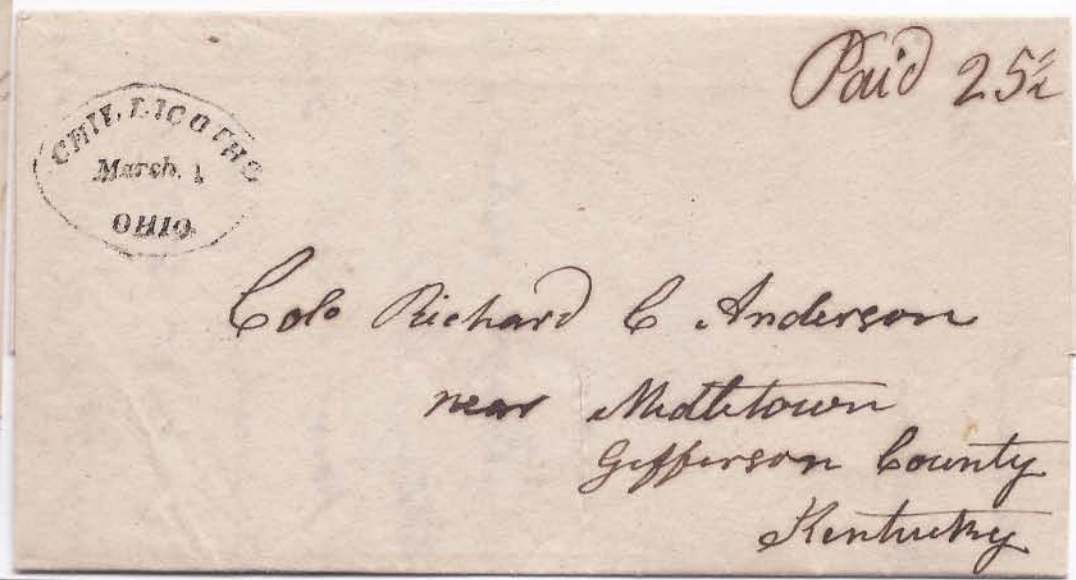 CHILLICOTHO
March. 1
OHIO.
Paid 25
Colo Richard C Anderson
near Midletown
Gefferson County
Kentucky